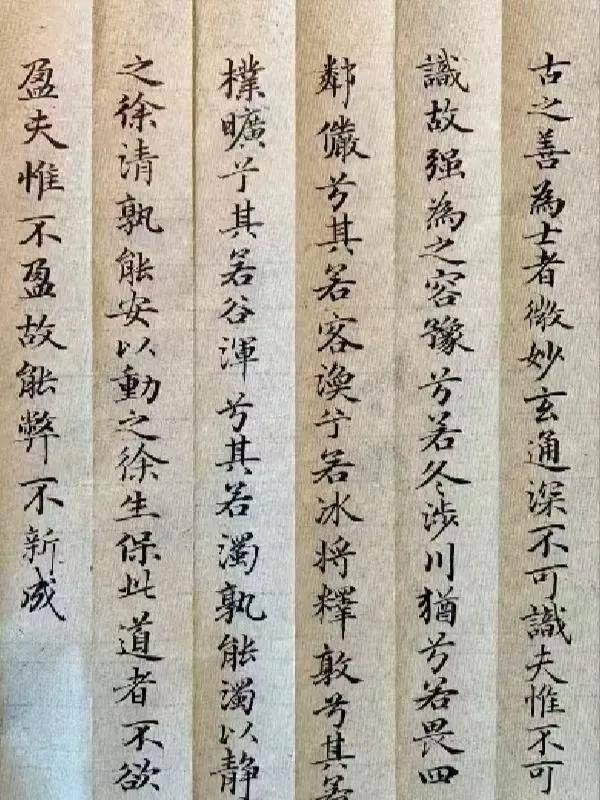 古之善為士者微妙玄通深不可識夫惟不可
識故强為之容豫兮若冬涉川猶兮若畏四
鄰儼兮其若客渙兮若冰將釋敦兮其若
樸曠兮其若谷渾兮其若濁孰能濁以靜
之徐清孰能安以動之徐生保此道者不欲
盈夫惟不盈故能弊不新成